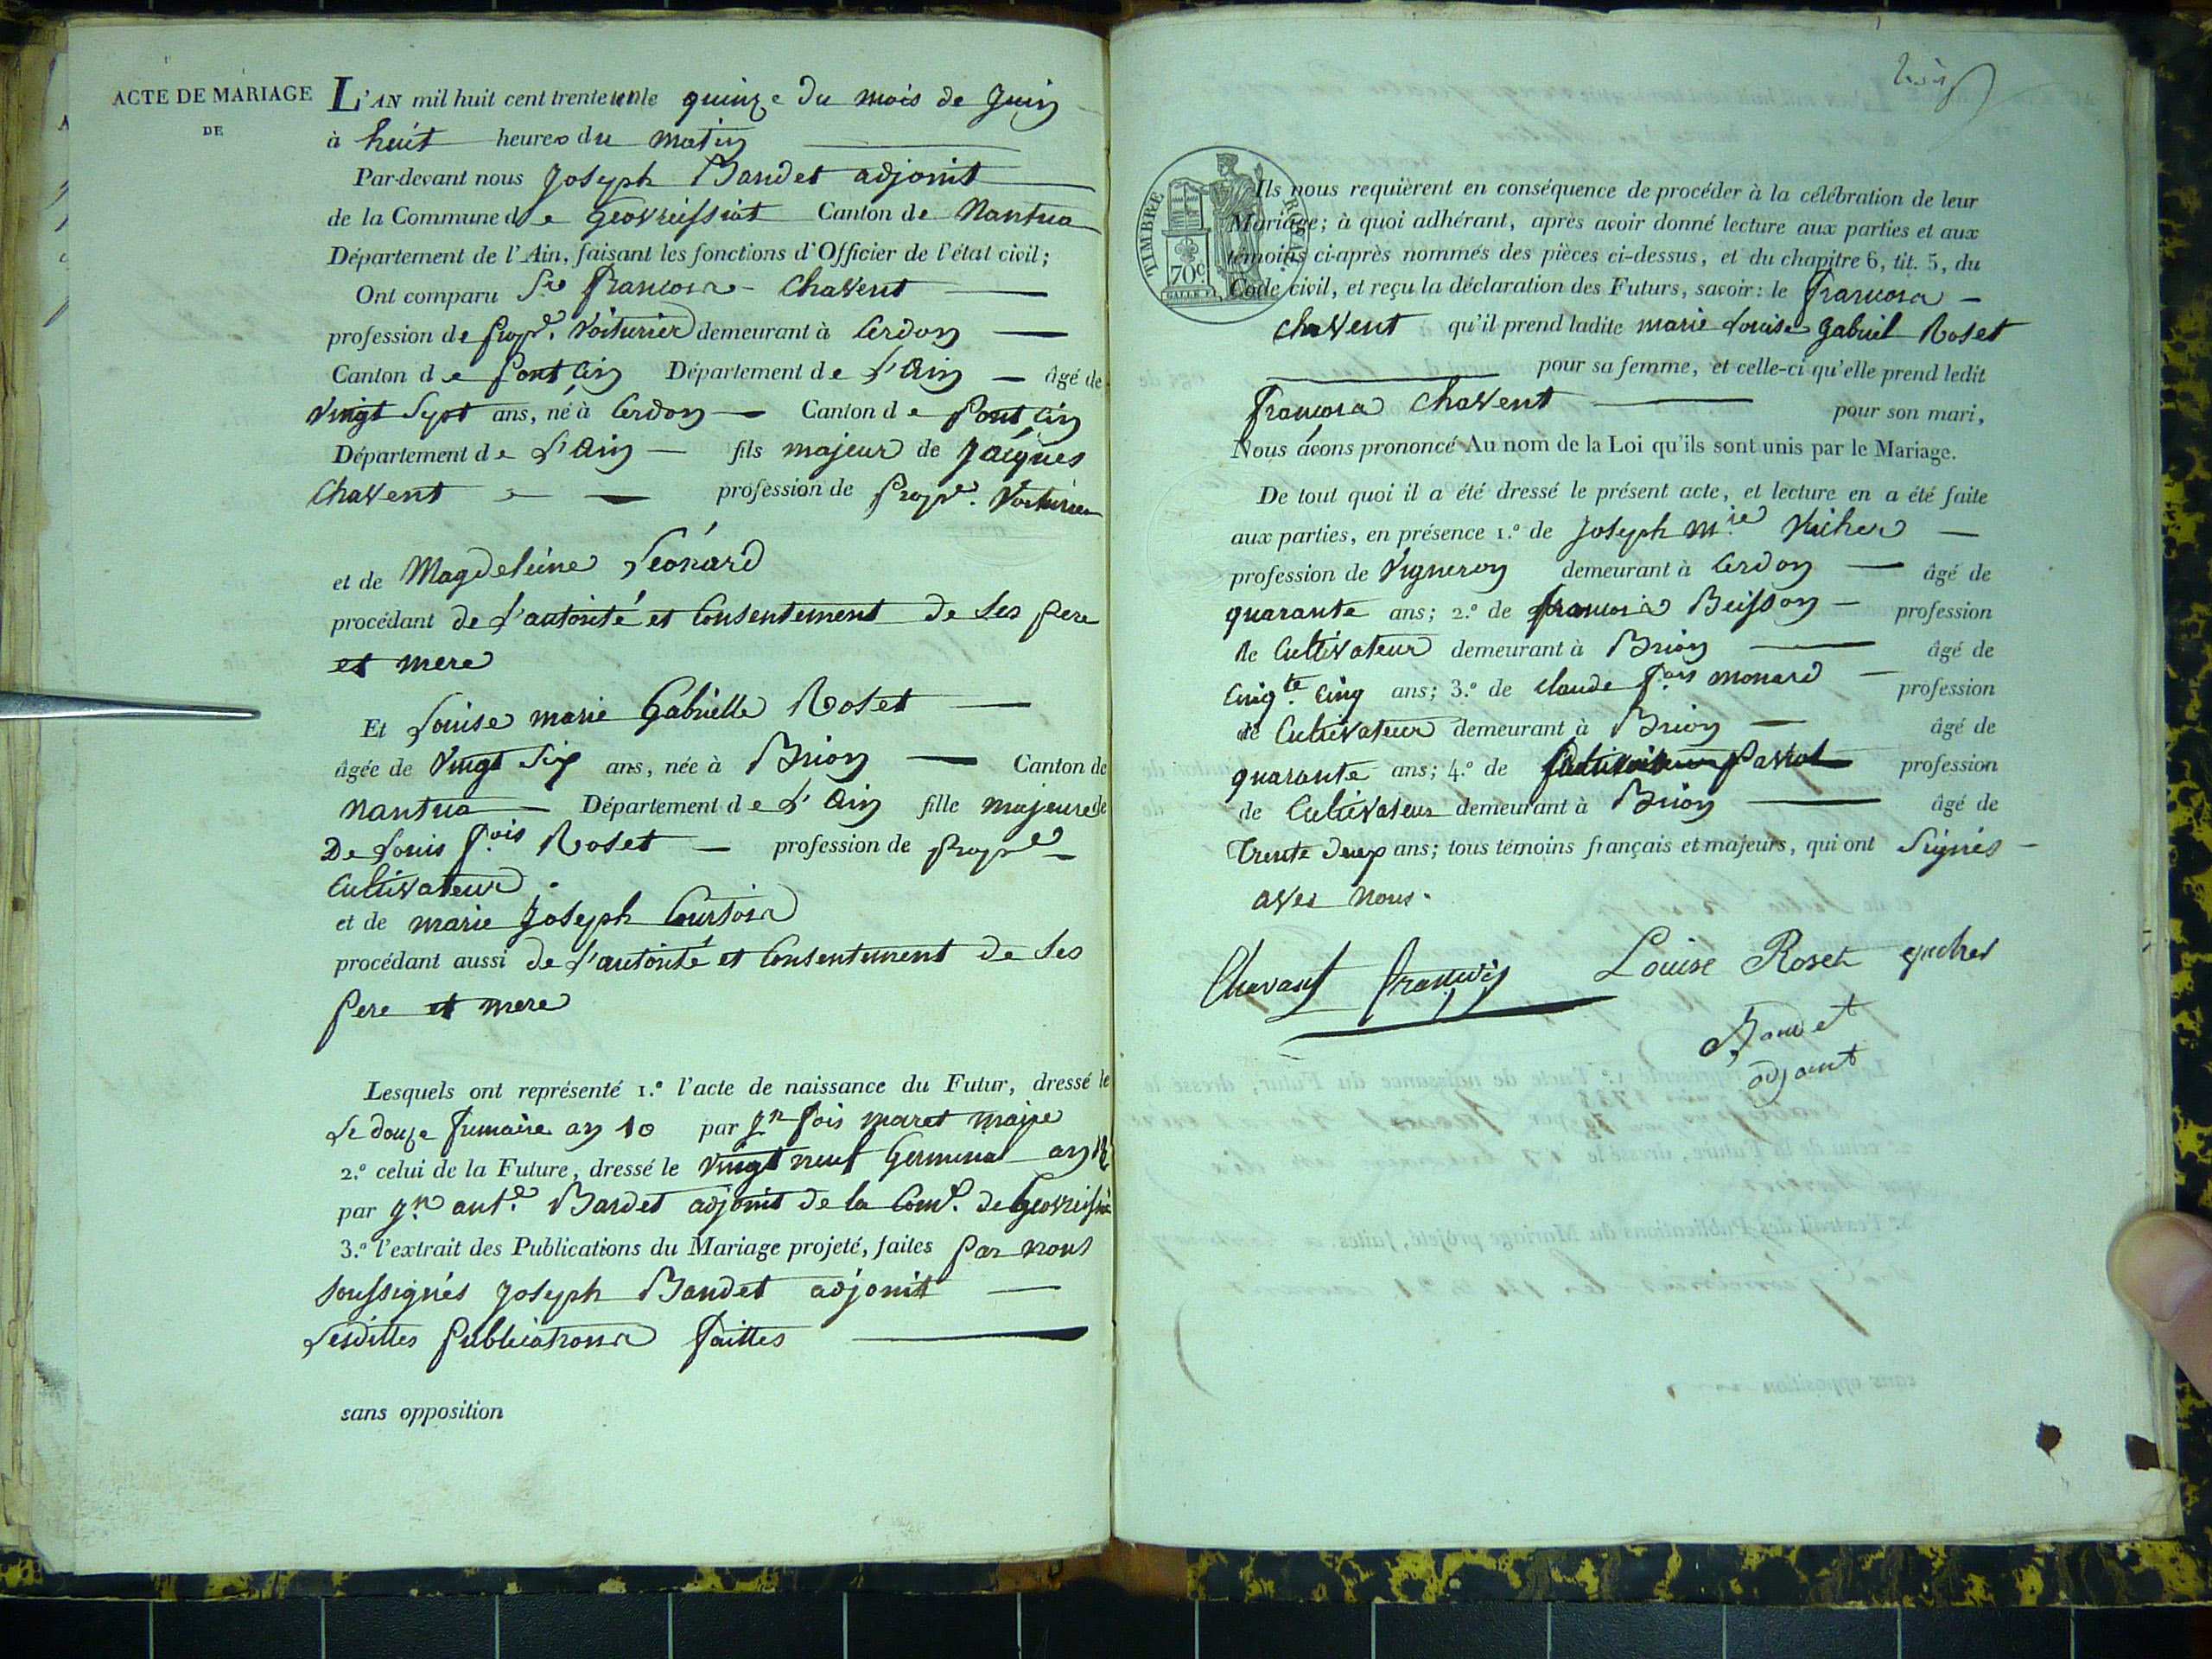 ACTE DE MARIAGE
DE
L'AN mil huit cent trente un le quinze du mois de Juin
à huit heures du matin
Par-devant nous Joseph Baudet adjoint
de la Commune de Geovreissiat Canton de Nantua
Département de l'Ain, faisant les fonctions d'Officier de l'état civil;
Ont comparu Sr. francois Chavent
profession de propre. Voiturier demeurant à Cerdon
Canton de Pont Ain Département de L'Ain âgé de
vingt Sept ans, né à Cerdon Canton de Pont Ain
Département de L'Ain fils majeur de Jacques
Chavent profession de propre. Voiturier
et de Magdeleine Léonard
procédant de L'autorité et Consentement de Ses pere
et mere
Et Louise marie Gabrielle Roset
âgée de vingt Six ans, née à Brion Canton de
Nantua Département de L'Ain fille majeure de
De Louis fois Roset profession de propre
Cultivateur.
et de marie Joseph Courtois
procédant aussi de L'autorité et Consentement de Ses
pere et mere
Lesquels ont représenté 1.º l'acte de naissance du Futur, dressé le
Le douze frimaire an 10 par Jn fois maret maire
2.º celui de la Future, dressé le vingt neuf Germinal an
par Jn ant.e Bardet adjoint de la Come. de Geovreissiat
3.º l'extrait des Publications du Mariage projeté, faites par nous
Soussignés Joseph Baudet adjoint
Lesdittes publications faittes
sans opposition
TIMBRE ROYAL
70c.
Ils nous requièrent en conséquence de procéder à la célébration de leur
Mariage; à quoi adhérant, après avoir donné lecture aux parties et aux
témoins ci-après nommés des pièces ci-dessus, et du chapitre 6, tit. 5, du
Code civil, et reçu la déclaration des Futurs, savoir: le francois
chavent qu'il prend ladite marie Louise Gabriel Roset
pour sa femme, et celle-ci qu'elle prend ledit
francois Chavent pour son mari,
Nous avons prononcé Au nom de la Loi qu'ils sont unis par le Mariage.
De tout quoi il a été dressé le présent acte, et lecture en a été faite
aux parties, en présence 1.º de Joseph M.ie
profession de Vigneron demeurant à Cerdon âgé de
quarante ans; 2.º de francois Buisson profession
de Cultivateur demeurant à Brion âgé de
Cinqte. Cinq ans; 3.º de Claude fois monard profession
de Cultivateur demeurant à Brion âgé de
quarante ans; 4.º de profession
de Cultivateur demeurant à Brion âgé de
Trente deux ans; tous témoins français et majeurs, qui ont Signés
avec nous.
Chavant francois Louise Roset
Baudet
adjoint